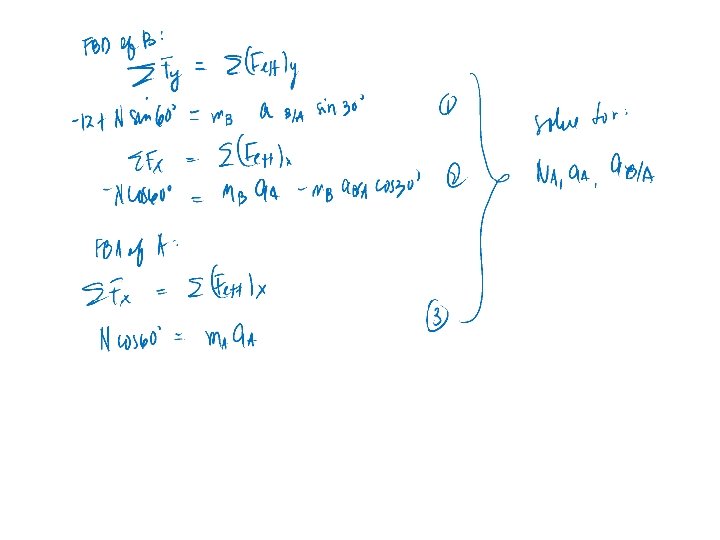 FBD of B:
ΣFy = Σ(Feff)y
-12 + N sin 60° = mB aB/A sin 30° ①
ΣFx = Σ(Feff)x
-N cos 60° = mB aA - mB aB/A cos 30° ②
FBA of A:
ΣFx = Σ(Feff)x
N cos 60° = mA aA ③
solve for:
NA, aA, aB/A